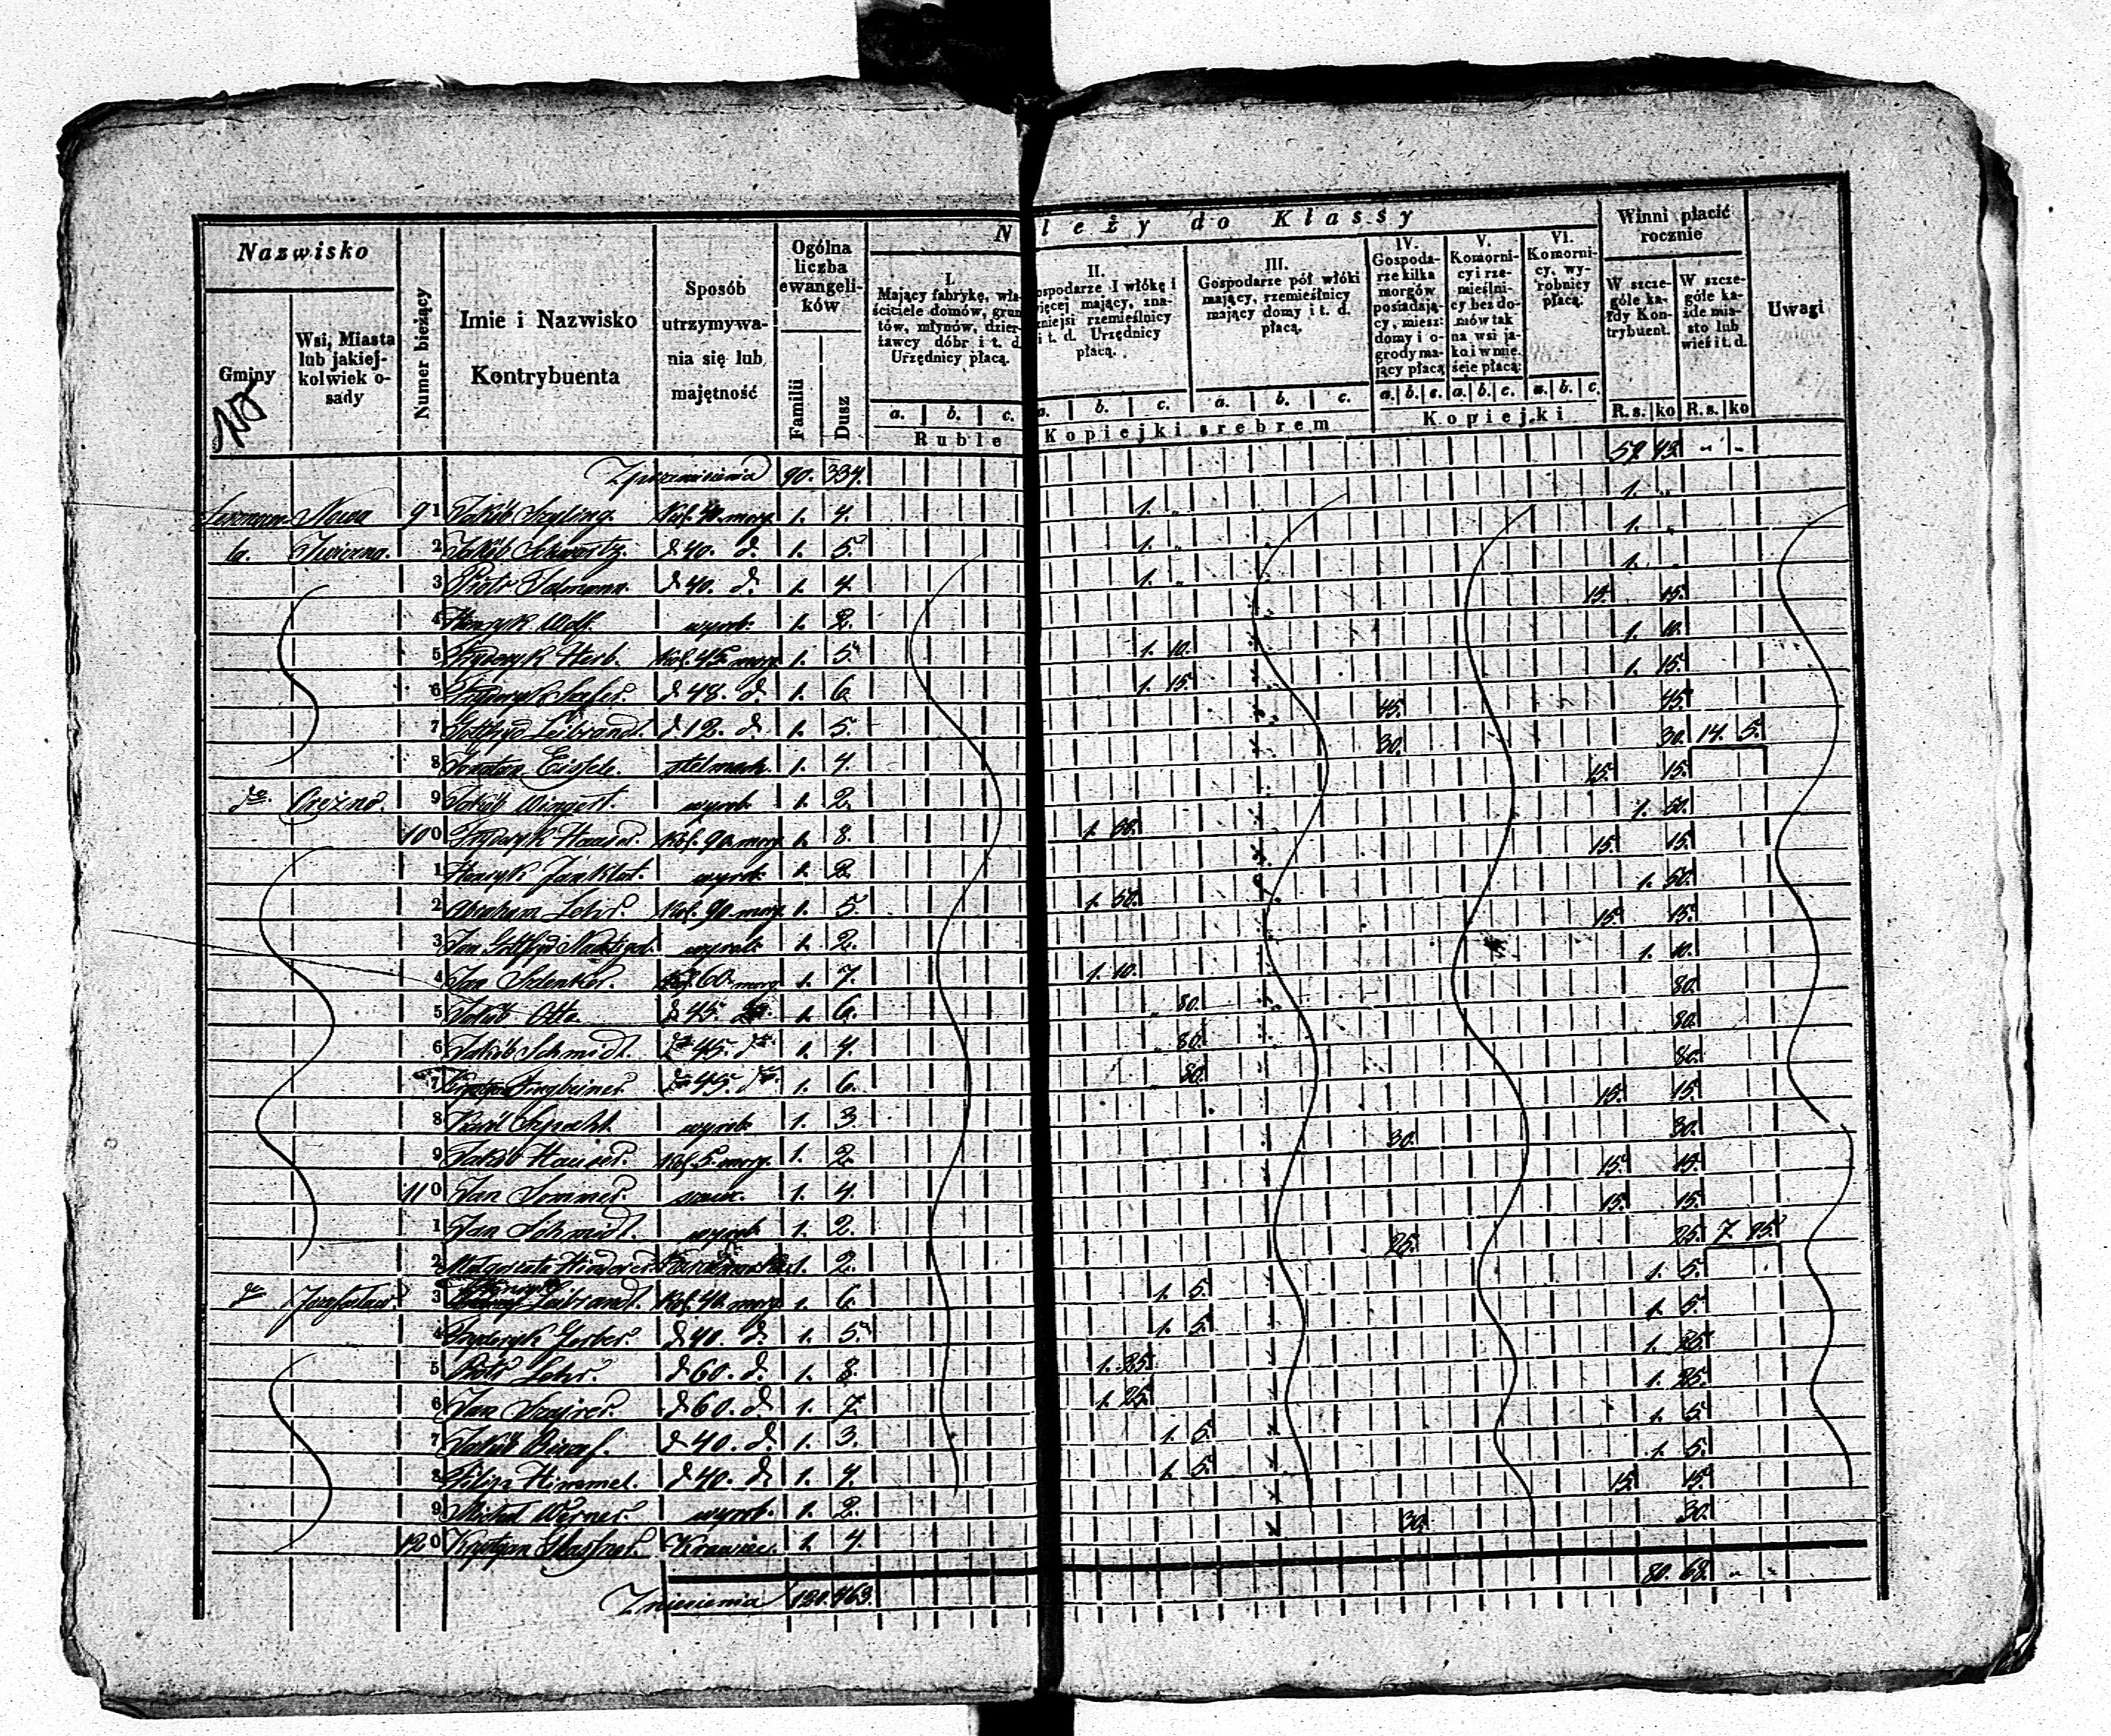 Nazwisko
Gminy
Wsi, Miasta lub jakiej-kolwiek o-sady
Numer bieżący
Imie i Nazwisko Kontrybuenta
Sposób utrzymywa-nia się lub majętność
Ogólna liczba ewangeli-ków
Familii
Dusz
N leży do Klassy
I. Mający fabrykę, wła-ściciele domów, grun-tów, młynów, dzier-ławcy dóbr i t. d. Urzędnicy płacą.
a. b. c.
Ruble
II. ospodarze 1 włókę i ięcej mający, zna-zniejsi rzemieślnicy i t. d. Urzędnicy płacą.
a. b. c.
III. Gospodarze pół włóki mający, rzemieślnicy mający domy i t. d. płacą.
a. b. c.
Kopiejki srebrem
IV. Gospoda-rze kilka morgów posiadają-cy, miesz: domy i o-grody ma-jący płacą
a. b. c.
V. Komorni-cy i rze-mieślni-cy bez do-mów tak na wsi ja-ko i w mie-ście płacą:
a. b. c.
VI. Komorni-cy, wy-robnicy płacą:
a. b. c.
Kopiejki
Winni płacić rocznie
W szcze-góle ka-żdy Kon-trybuent.
R. s. ko
W szcze-góle ka-żde mia-sto lub wieś i t. d.
R. s. ko
Uwagi
Z przeniesienia 90. 334. 59 43 " "
Nowa 91 Jakób Szyling. Kol. 40. morg. 1. 4. 1. " 1. "
Iwiczna. 2 Jakób Schwartz. d 40. d. 1. 5. 1. " 1. "
3 Piotr Talmann. d 40. d. 1. 4. 1. " 1. "
4 Henryk Wolf. wyrob. 1. 2. 15. 15.
5 Fryderyk Herb. Kol. 45. morg. 1. 5. 1. 10. 1. 10.
6 Fryderyk Szefer. d 48. d. 1. 6. 1. 15. 1. 15.
7 Gottfryd Leibrand. d 12. d 1. 5. 45. 45.
8 Eissele. stelmach. 1. 4. 30. 30. 14. 5.
do. 9 Jakób Wingert. wyrob. 1. 2. 15. 15.
100 Fryderyk Hauser. Kol. 90. morg 1. 8. 1. 50. 1. 50.
1 Henryk wyrob. 1. 2. 15. 15.
2 Abraham Lehr. Kol. 90. morg. 1. 5. 1. 50. 1. 50.
3 Jan Gottfryd wyrob. 1. 2. 15. 15.
4 Jan Szlenker. Kol. 60. morg 1. 7. 1. 10. 1. 10.
5 Jakób Otto d 45. 1. 6. " 80. 80.
6 Jakób Schmidt. do 45. do. 1. 4. " 80. 80.
7 do 45. do. 1. 6. " 80. 80.
8 Karól Szpecht. wyrob. 1. 3. 15. 15.
9 Jakób Hauser. Kol. 5. morg. 1. 2. 30. 30.
110 Jan Sommer. 1. 4. 15. 15.
1 Jan Schmidt. wyrob. 1. 2. 15. 15.
2 Małgorzata 1. 2. 25. 25. 7. 95.
do Józefosław 3 Henryk Leibrandt. Kol. 40. morg. 1. 6. 1. 5. 1. 5.
4 Fryderyk Gerber. d 40. d. 1. 5. 1. 5. 1. 5.
5 Piotr Lehr. d 60. d. 1. 8. 1. 25. 1. 25.
6 Jan d 60. d. 1. 7. 1. 25. 1. 25.
7 Jakób d 40. d. 1. 3. 1. 5. 1. 5.
8 Filip Himmel. d 40. d. 1. 4. 1. 5. 1. 5.
9 Michał Werner. wyrob. 1. 2. 15. 15.
120 Krystyan Krawiec. 1. 4. 30. 30.
Zniesienia 120. 463. 80. 68. " "